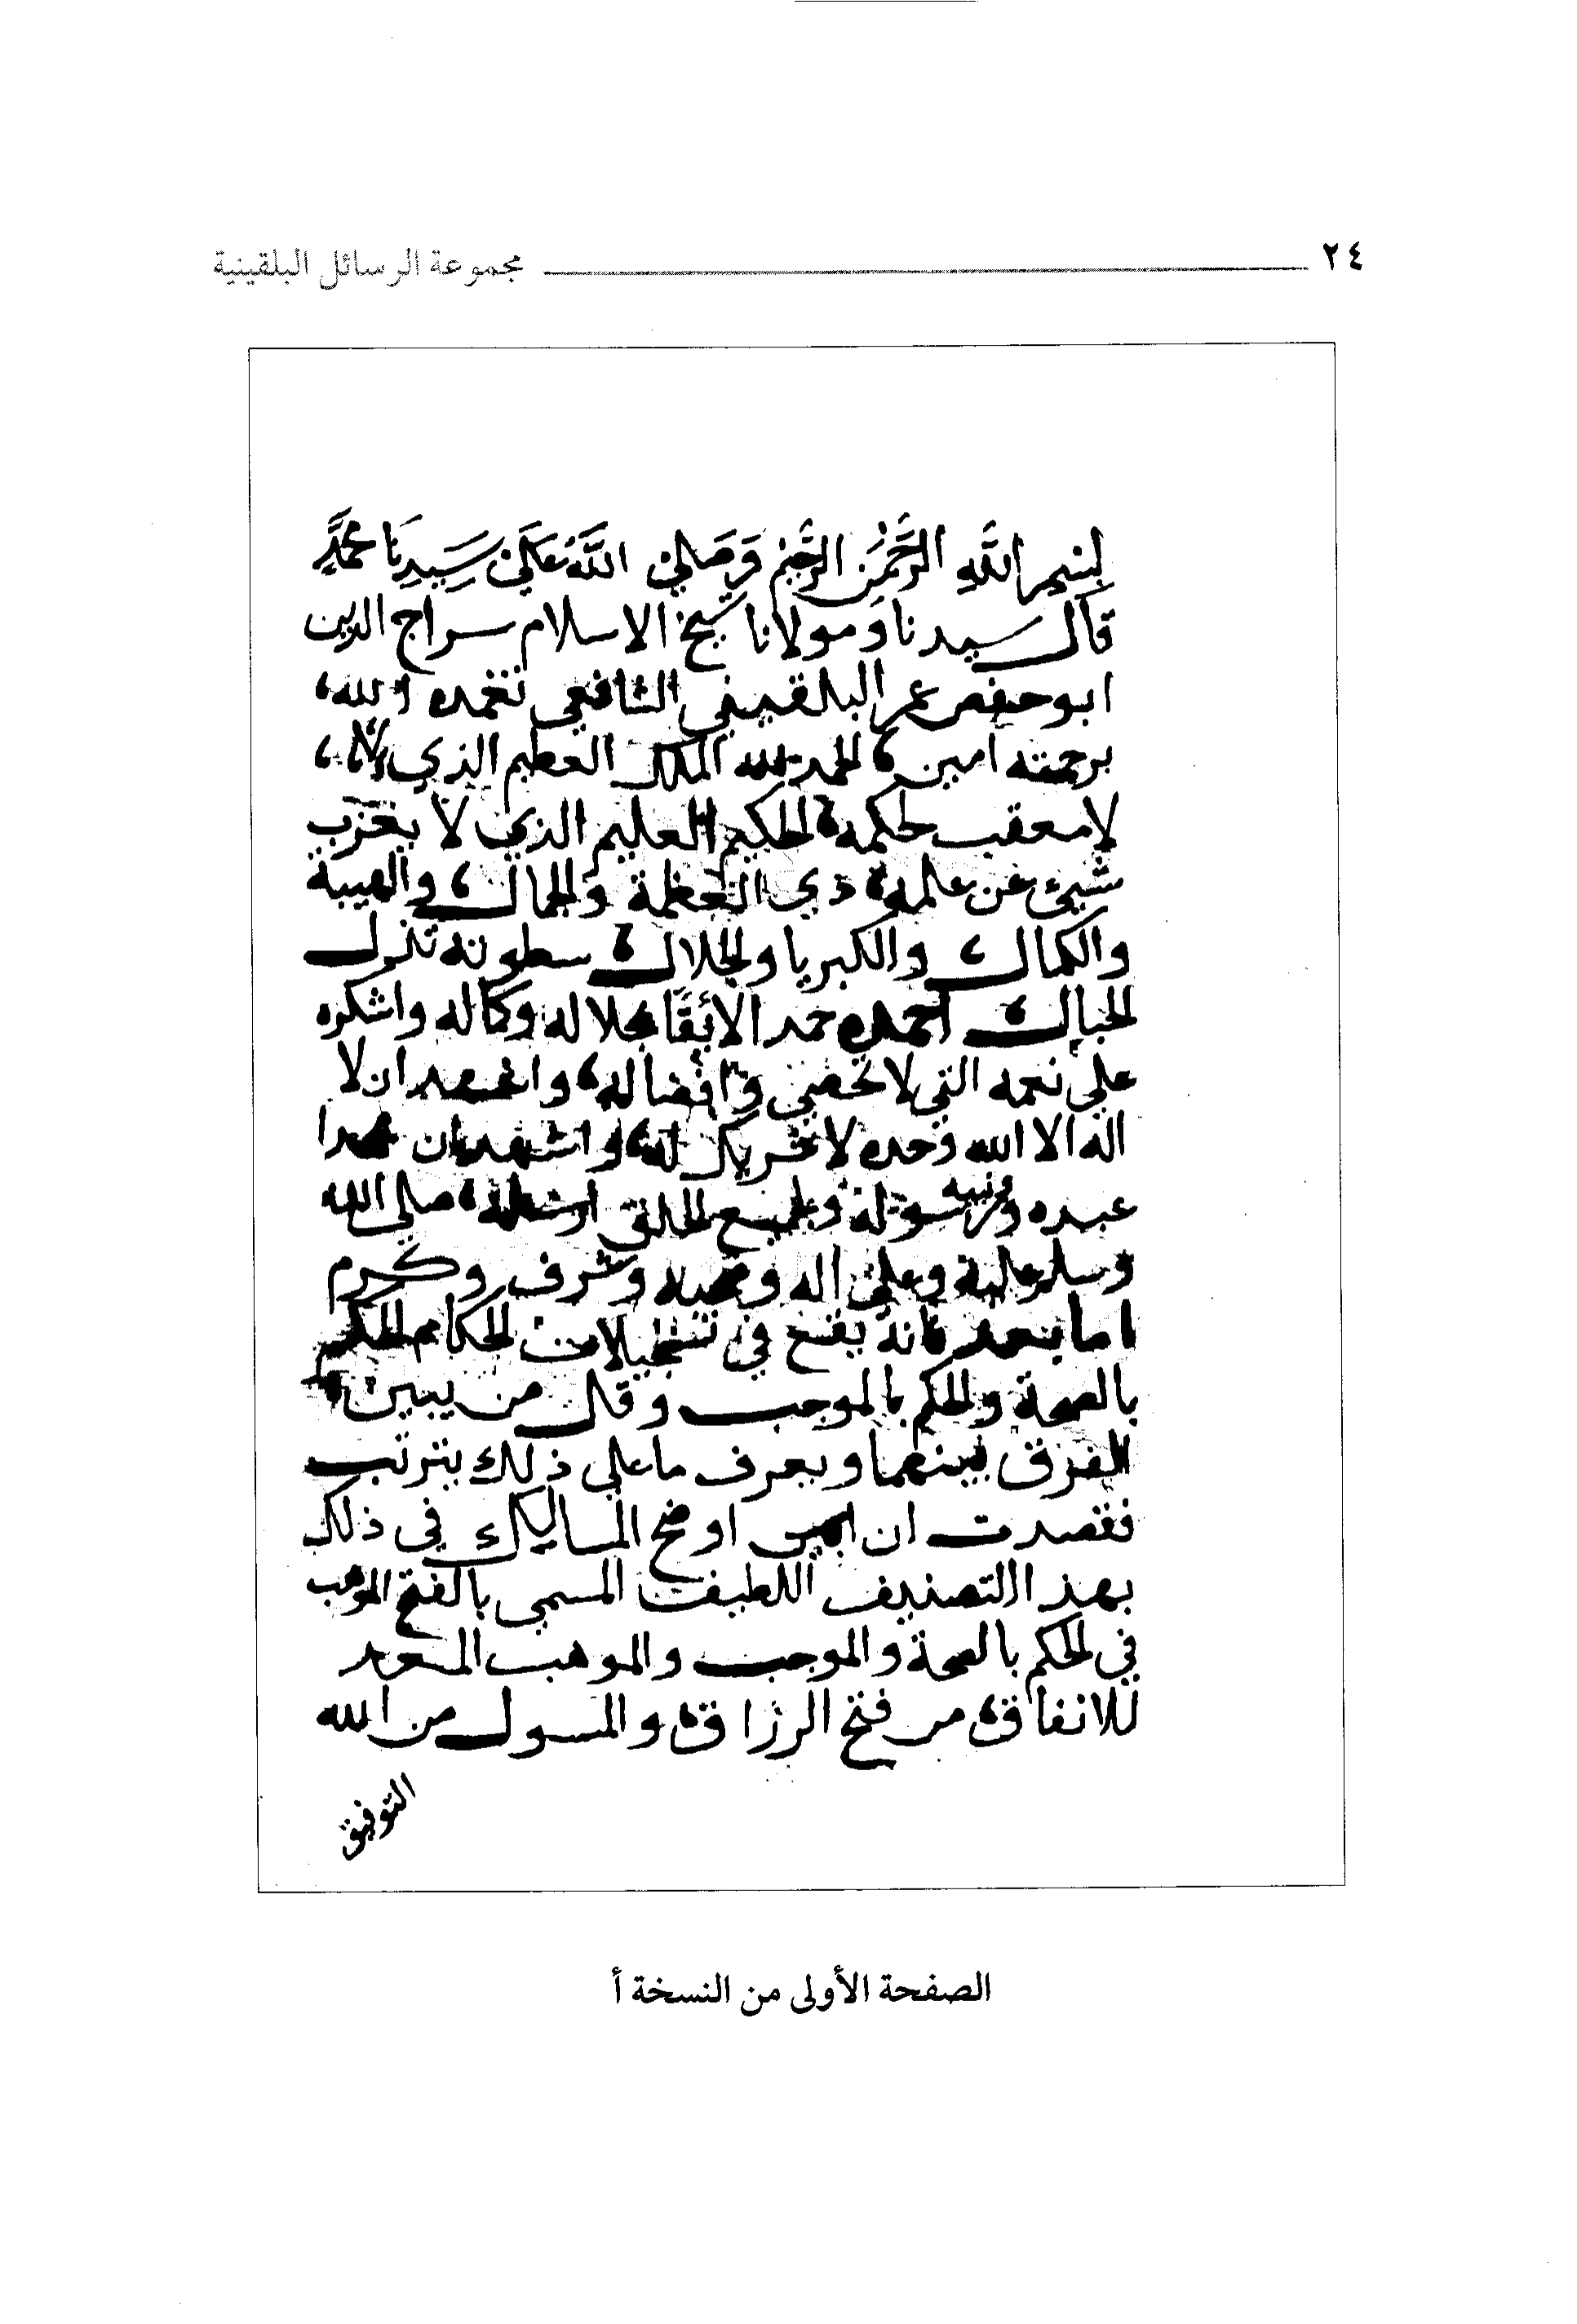 ٢٤ مجموعة الرسائل البلقينية
بِسْمِ اللَّهِ الرَّحْمَنِ الرَّحِيْمِ وَصَلى اللَّهُ عَلَى سَيِدِنَا مُحَمَّدٍ
قال سيدنا ومولانا شيخ الاسلام سراج الدين
ابو حفص عمر البلقيني الشافعي تغمده الله،
برحمته امين، الحمد لله الملك العظيم الذي
لا معقب لحكمه، الحكيم العليم الذي لا يعزب
شيئ عن علمه، ذي العظمة والجمال، والهيبة
والكمال، والكبريا والجلال، سطوته تزل
الجبال، احمده حمدا لائقا بجلاله وكماله واشكره
على نعمه التي لا تحصى وافضاله، واشهد ان لا
اله الا الله وحده لا شريك له، واشهد ان محمدا
عبده ونبيه ورسوله ولجميع الخلق ارسله، صلى الله
وسلم عليه وعلى اله وصحبه وشرف وكرم
اما بعد فانه يقع في تسجيلات الحكام الحكم
بالصحة والحكم بالموجب وقل من يبين
الفرق بينهما ويعرف ما على ذلك يترتب
فقصدت ان اوضح المساليك في ذلك
بهذا التصنيف اللطيف المسمى بالفتح الموهب
في الحكم بالصحة والموجب والموهب المعد
للانفاق، من فتح الرزاق، والمسول من الله
التوفيق
الصفحة الأولى من النسخة أ